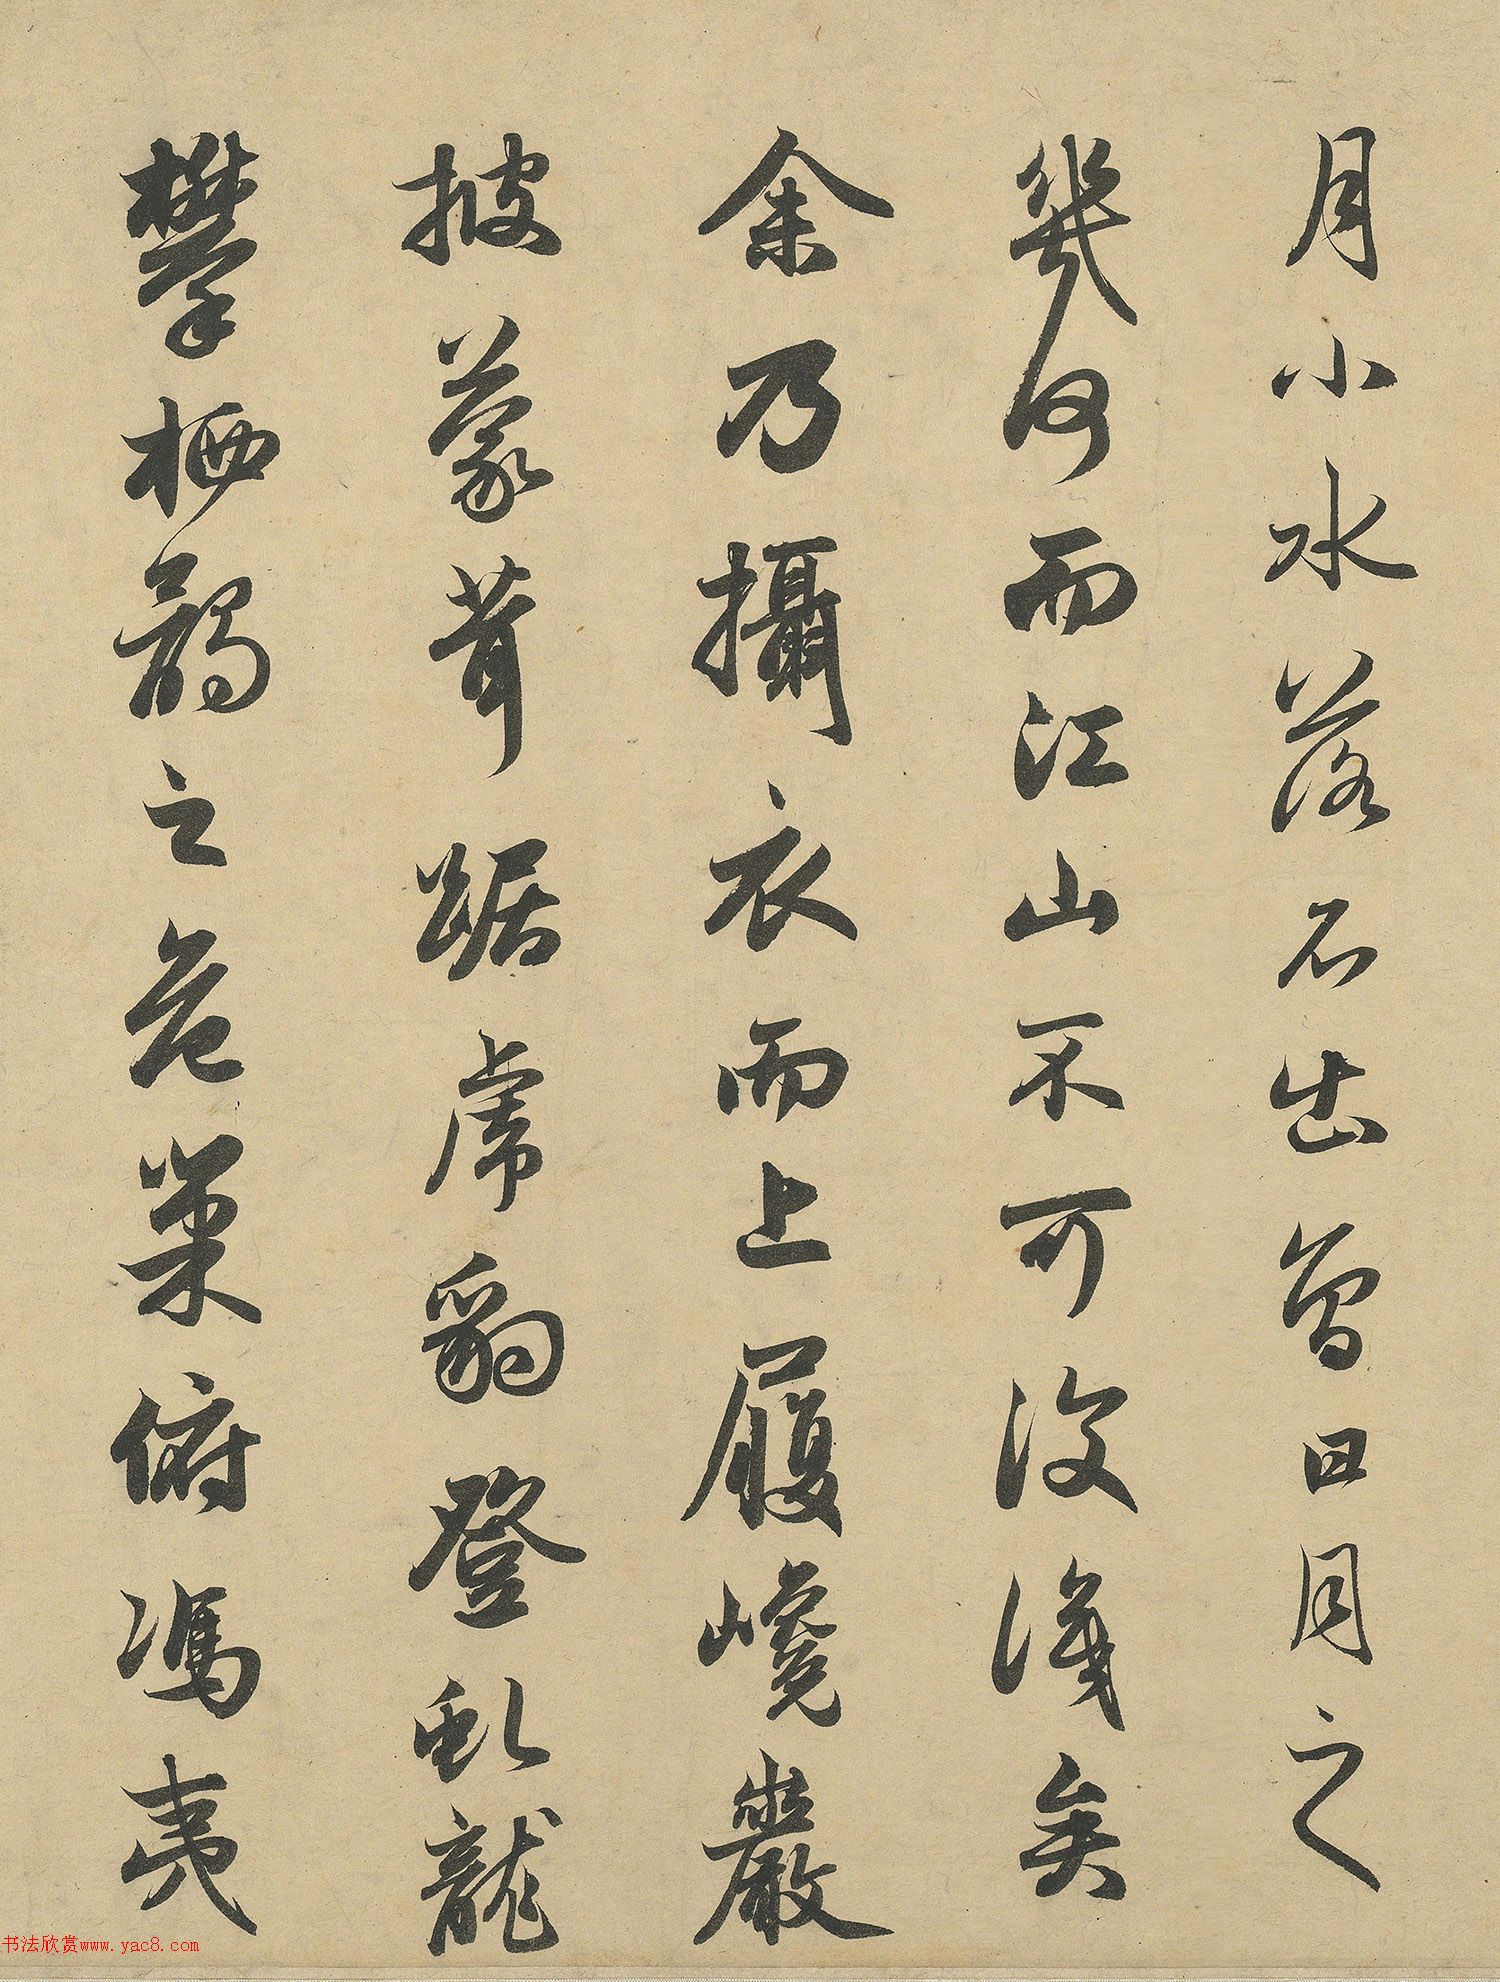 月小水落石出曾日月之
幾何而江山不可復識矣
余乃攝衣而上履巉巖
披蒙茸踞虎豹登虯龍
攀栖鶻之危巢俯馮夷
书法欣赏www.yac8.com